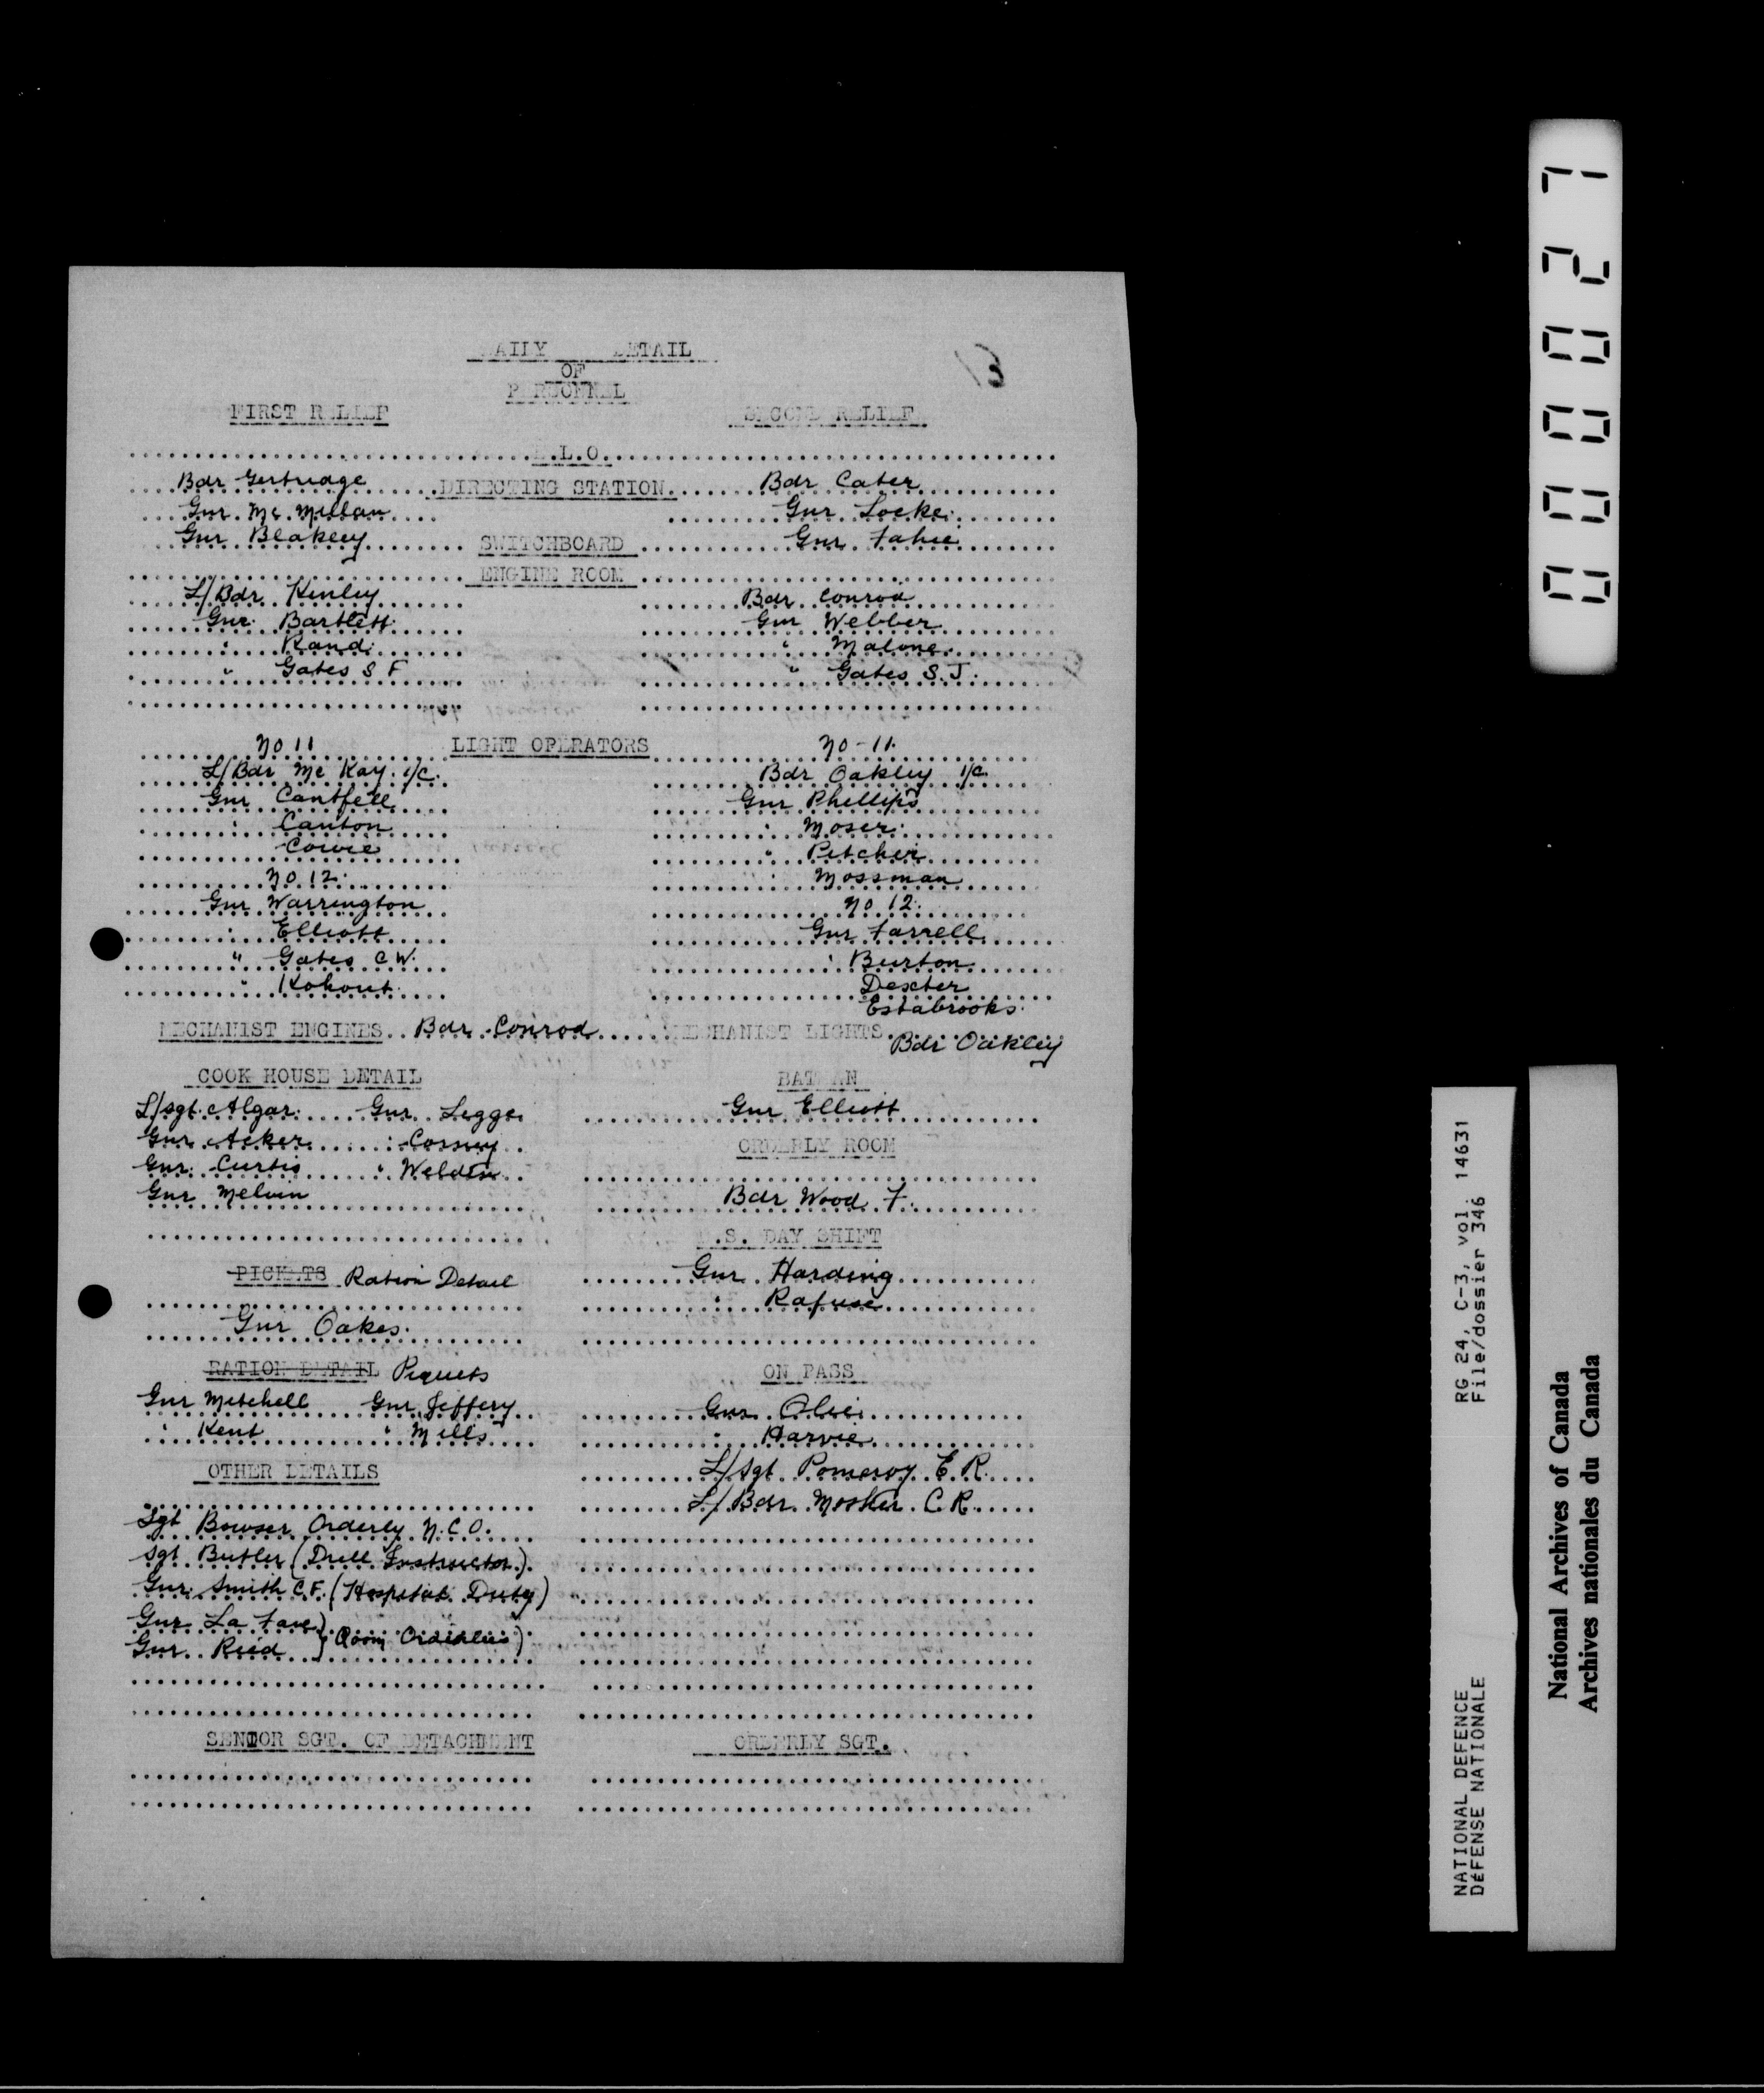 DAILY DETAIL
OF
PERSONNEL
FIRST RELIEF SECOND RELIEF
.L.O.
Bdr Gertridge DIRECTING STATION Bdr Cater
Gnr. Mc.Millan Gnr Locke
Gnr Blakeey SWITCHBOARD Gnr Fahie
ENGINE ROOM
L/Bdr Kenley Bdr Conrod
Gnr. Bartlett Gnr Webber
" Rand " Malone
" Gates S F " Gates S.J.
No 11 LIGHT OPERATORS No-11.
L/Bdr Mc Kay i/c. Bdr Oakley i/c.
Gnr Cantfell Gnr Phillips
" Canton " Moser
Cowie " Pitcher
No 12 " Mossman
Gnr Warrington No 12.
" Elliott Gnr Farrell
" Gates C W. " Burton
" Kohout Dexter
Estabrooks
MECHANIST ENGINES Bdr Conrod MECHANIST LIGHTS
Bdr Oakley
COOK HOUSE DETAIL BATMAN
L/Sgt Algar Gnr Legge Gnr Elliott
Gnr Acker " Corney ORDERLY ROOM
Gnr. Curtis " Weldin
Gnr Melvin Bdr Wood F.
.S. DAY SHIFT
PICKETS Ration Detail Gnr Harding
" Rafuse
Gnr Oakes
RATION DETAIL Piquets ON PASS
Gnr Mitchell Gnr Jeffery Gnr
" Kent " Mills " Harvie
OTHER DETAILS L/Sgt Pomeroy E.R.
L/Bdr. Mosher C.R.
Sgt Bowser Orderly N.C.O.
Sgt Butler (Drill Instructor)
Gnr. Smith C.F. (Hospital Duty)
Gnr La Fave
Gnr. Reid } (Room Orderlies)
SENIOR SGT. OF DETACHMENT ORDERLY SGT.
000027
RG 24, C-3, vol. 14631
File/dossier 346
NATIONAL DEFENCE
DÉFENSE NATIONALE
National Archives of Canada
Archives nationales du Canada